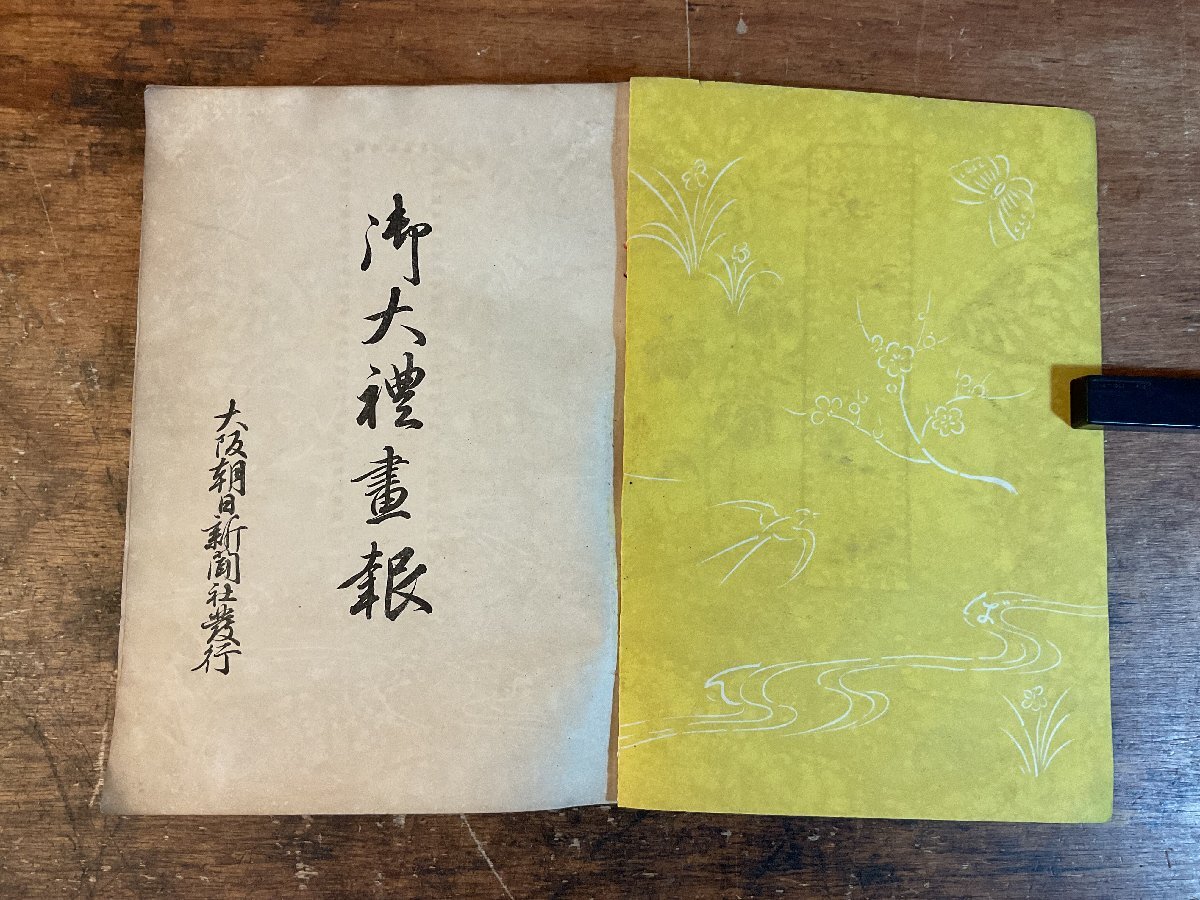 御大禮畫報
大阪朝日新聞社發行